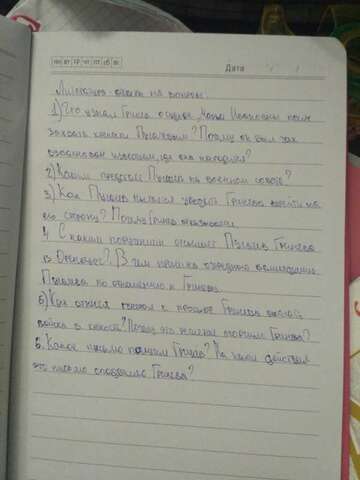 пн вт ср чт пт сб вс
Дата
Литература - ответы на вопросы.
1) Что узнал Гринев о судьбе Марьи Ивановны после
захвата крепости Пугачевым? Почему он был так
взволнован известием, где она находится?
2) Каким предстает Пугачев на военном совете?
3) Как Пугачев пытался убедить Гринева перейти на
его сторону? Почему Гринев отказался
4. С каким поручением отпускает Пугачев Гринева
в Оренбург? В чем причина
Пугачева по отношению к Гриневу
5) Как отнеся генерал к просьбе Гринева выслать
войска в крепость? Почему это решение огорчило Гринева?
6. Какое письмо получил Гринев? На какие действия
это письмо сподвигло Гринева?